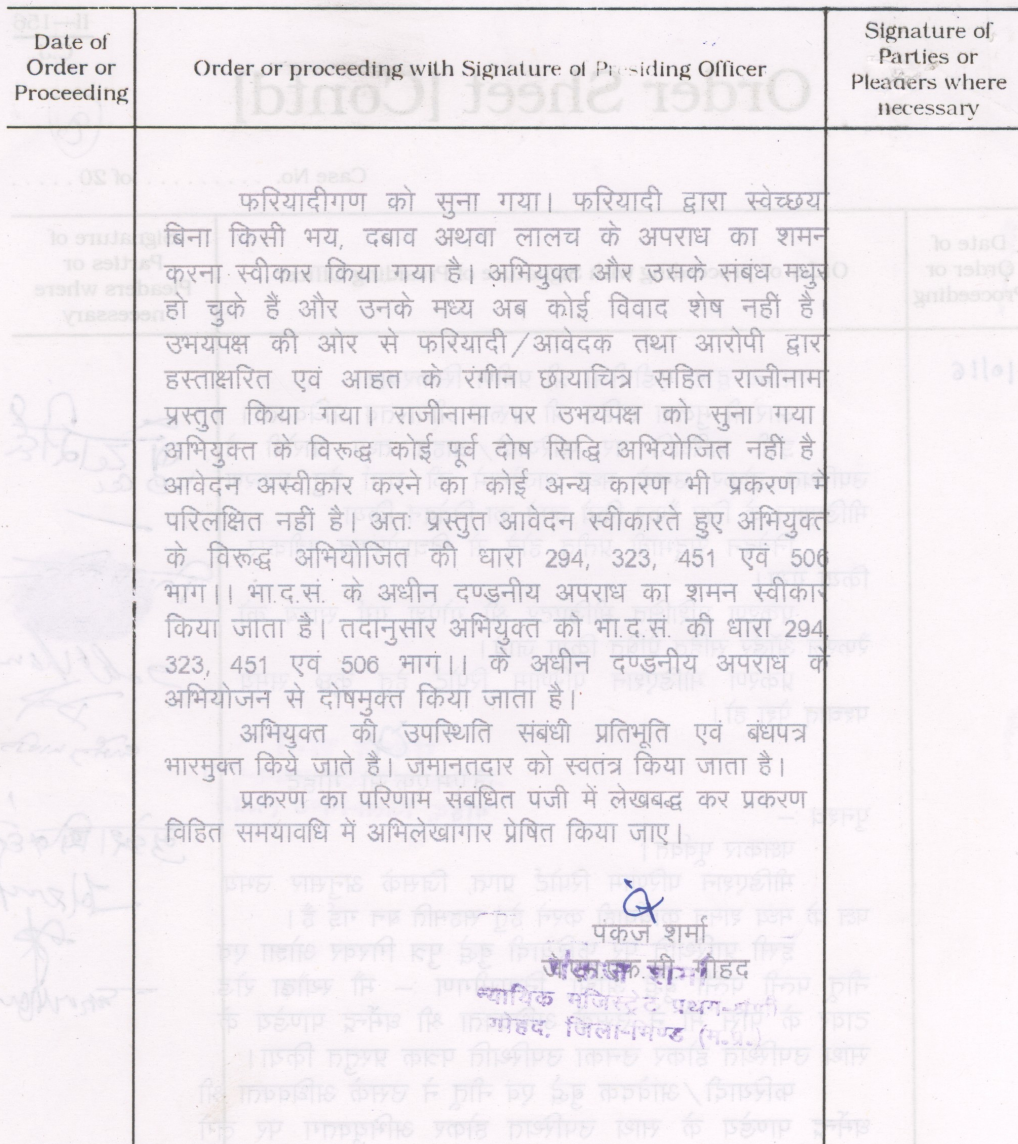 Date of
Order or
Proceeding
Order or proceeding with Signature of Presiding Officer
Signature of
Parties or
Pleaders where
necessary
फरियादीगण को सुना गया। फरियादी द्वारा स्वेच्छय
बिना किसी भय, दबाव अथवा लालच के अपराध का शमन
करना स्वीकार किया गया है। अभियुक्त और उसके संबंध मधु
हो चुके हैं और उनके मध्य अब कोई विवाद शेष नहीं है।
उभयपक्ष की ओर से फरियादी/आवेदक तथा आरोपी द्वार
हस्ताक्षरित एवं आहत के रंगीन छायाचित्र सहित राजीनाम
प्रस्तुत किया गया। राजीनामा पर उभयपक्ष को सुना गया
अभियुक्त के विरूद्ध कोई पूर्व दोष सिद्धि अभियोजित नहीं है
आवेदन अस्वीकार करने का कोई अन्य कारण भी प्रकरण में
परिलक्षित नहीं है। अतः प्रस्तुत आवेदन स्वीकारते हुए अभियुक्त
के विरूद्ध अभियोजित की धारा 294, 323, 451 एवं 506
भाग।। भा.द.सं. के अधीन दण्डनीय अपराध का शमन स्वीकार
किया जाता है। तदानुसार अभियुक्त को भा.द.सं. की धारा 294,
323, 451 एवं 506 भाग।। के अधीन दण्डनीय अपराध के
अभियोजन से दोषमुक्त किया जाता है।
अभियुक्त की उपस्थिति संबंधी प्रतिभूति एवं बंधपत्र
भारमुक्त किये जाते है। जमानतदार को स्वतंत्र किया जाता है।
प्रकरण का परिणाम संबंधित पंजी में लेखबद्ध कर प्रकरण
विहित समयावधि में अभिलेखागार प्रेषित किया जाए।
पंकज शर्मा
गोहद
न्यायिक मजिस्ट्रेट प्रथम श्रेणी
गोहद, जिला भिण्ड (म.प्र.)